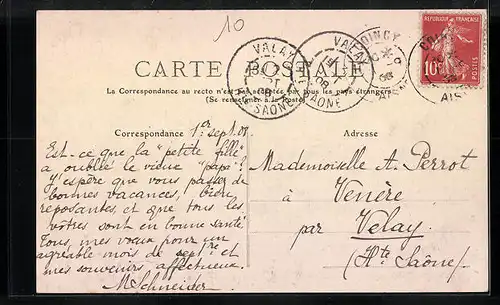 10
VALAY
VALAY
COINCY
SAONE
SAONE
AISNE
RÉPUBLIQUE FRANÇAISE
10
CARTE POSTALE
La Correspondance au recto n'est pas acceptée par tous les pays étrangers
(Se renseigner à la Poste)
Correspondance
Adresse
1er sept. 08
Est-ce que la "petite fille"
a oublié le vieux "papa"?
J'espère que vous passez de
bonnes vacances, bien
reposantes, et que tous les
vôtres sont en bonne santé
Tous mes vœux pour un
agréable mois de septbre et
mes souvenirs affectueux.
MSchneider
Mademoiselle A. Perrot
à Venère
par Velay
(Hte Saône)